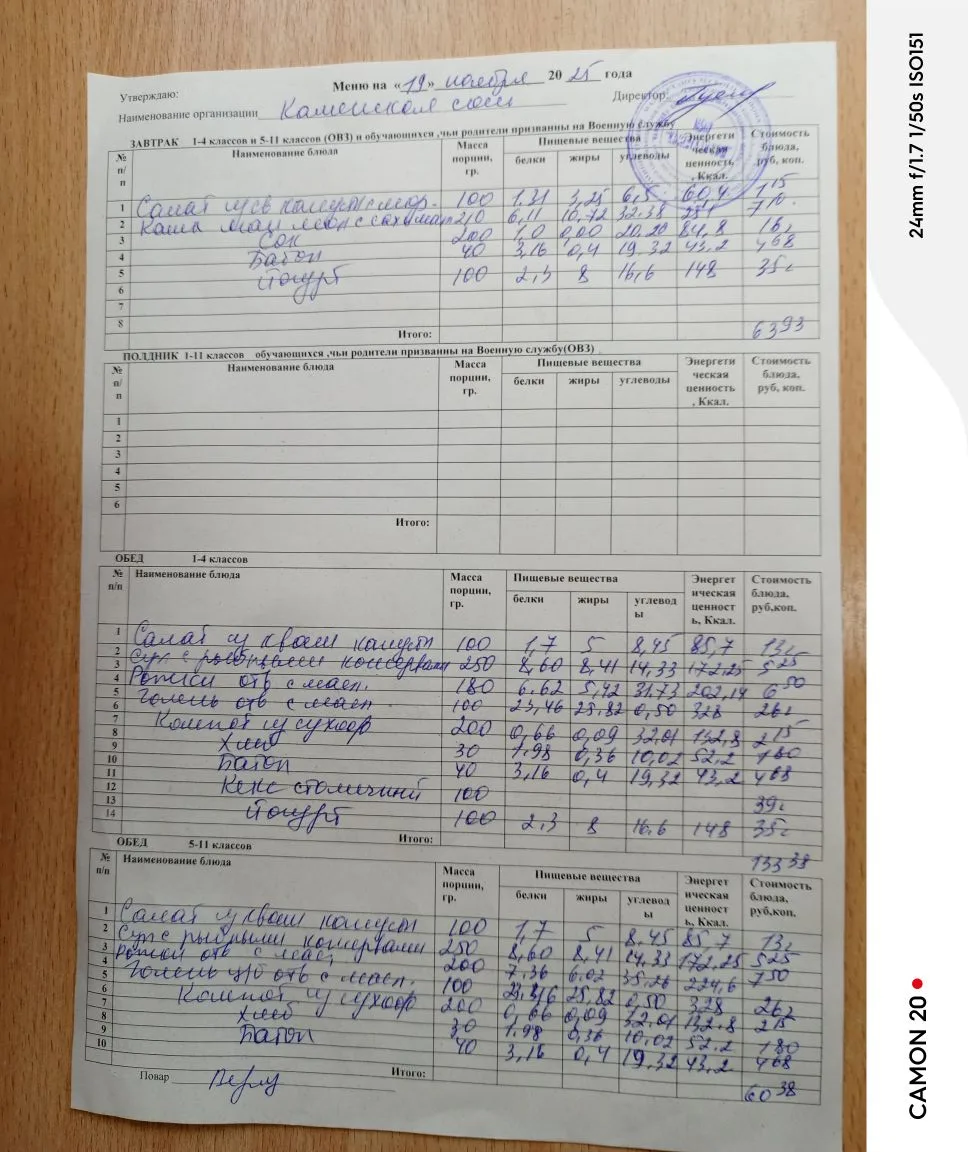 Утверждаю:
Меню на «19» ноября 2025 года
Наименование организации Каменская сош
Директор:
ЗАВТРАК 1-4 классов и 5-11 классов (ОВЗ) и обучающихся ,чьи родители призванны на Военную службу
№ п/п Наименование блюда Масса порции, гр. Пищевые вещества Энергетическая ценность, Ккал. Стоимость блюда, руб, коп.
белки жиры углеводы
1 Салат из св капусты с мор. 100 1,31 3,25 6,5 60,4
2 Каша ман молоч с сахаром 210 6,11 10,72 32.38 251
3 Сок 200 1,0 0,00 20,20 84,8 16
4 Батон 40 3,16 0,4 19.32 43,2 4 68
5 Йогурт 100 2,3 8 16,6 148 35
6
7
8
Итого: 63 93
ПОЛДНИК 1-11 классов обучающихся ,чьи родители призванны на Военную службу(ОВЗ)
№ п/п Наименование блюда Масса порции, гр. Пищевые вещества Энергетическая ценность, Ккал. Стоимость блюда, руб, коп.
белки жиры углеводы
1
2
3
4
5
6
Итого:
ОБЕД 1-4 классов
№ п/п Наименование блюда Масса порции, гр. Пищевые вещества Энергетическая ценность, Ккал. Стоимость блюда, руб,коп.
белки жиры углеводы
1 Салат из кваш капусты 100 1,7 5 8,45 85,7 13
2 Суп с рыбными консервами 250 8,60 8,41 14,33 172,25 5 25
3 Рожки отв с масл. 180 6.62 5,42 31.73 202,14 6 50
4 Голень отв с масл 100 23,46 25.82 0,50 328 26
5 Компот из сухофр 200 0,66 0,09 32,01 132,8 2 15
6 Хлеб 30 1.98 0,36 10,02 52,2 1 80
7 Батон 40 3,16 0,4 19,32 43,2 4 68
8 Кекс столичный 100 39
9 Йогурт 100 2,3 8 16.6 148 35
10
11
12
13
14
Итого: 133 38
ОБЕД 5-11 классов
№ п/п Наименование блюда Масса порции, гр. Пищевые вещества Энергетическая ценность, Ккал. Стоимость блюда, руб,коп.
белки жиры углеводы
1 Салат из кваш капусты 100 1,7 5 8.45 85,7 13
2 Суп с рыбными консервами 250 8,60 8,41 14.33 172,25 5 25
3 Рожки отв с масл 200 7.36 6.02 35,26 224,6 7 50
4 Голень ц/б отв с масл. 100 25,82 0,50 328 26
5 Компот из сухофр 200 0,66 0,09 32.01 132.8 2 15
6 Хлеб 30 1.98 0,36 10,02 52.2 1 80
7 Батон 40 3,16 0,4 19,32 43,2 4 68
8
9
10
Итого: 60 38
Повар
24mm f/1.7 1/50s ISO151
CAMON 20